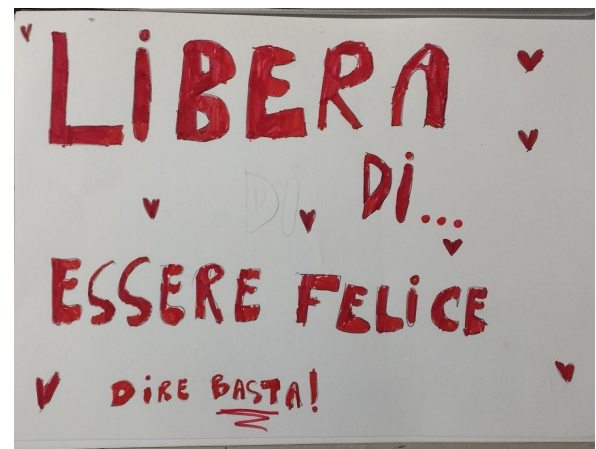 LiBERA
Di...
ESSERE FELiCE
DiRE BASTA!